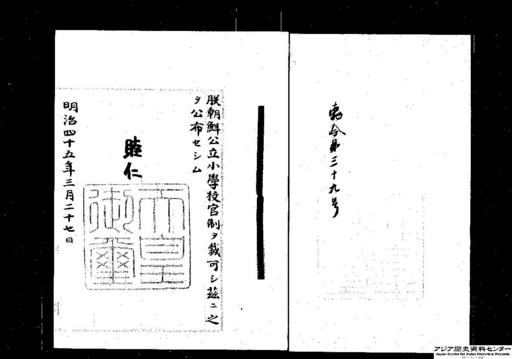 勅令第三十九号
朕朝鮮公立小學校官制ヲ裁可シ茲ニ之
ヲ公布セシム
睦仁
天皇御璽
明治四十五年三月二十七日
アジア歴史資料センター
Japan Center for Asian Historical Records